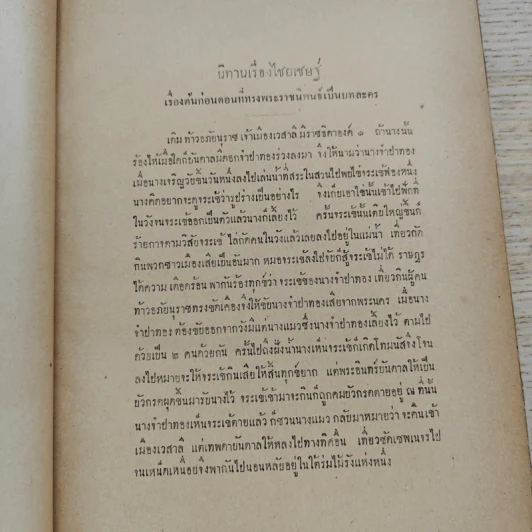 นิทานเรื่องไชยเชษฐ์
เรื่องต้นก่อนตอนที่ทรงพระราชนิพนธ์เป็นบทละคร
เดิม ท้าวอภัยนุราช เจ้าเมืองเวสาลี มีราชธิดาองค์ ๑ ถ้านางนั้น
ร้องไห้เมื่อใดก็บันดาลมีดอกจำปาทองร่วงลงมา จึงให้นามว่านางจำปาทอง
เมื่อนางเจริญวัยขึ้นวันหนึ่งลงไปเล่นน้ำที่สระในสวนไปพบไข่จระเข้ฟองหนึ่ง
นางคิดอยากจะดูจระเข้ว่ารูปร่างเป็นอย่างไร จึงเก็บเอาไข่นั้นเข้าไปฟักที่
ในวังจนจระเข้ออกเป็นตัวแล้วนางก็เลี้ยงไว้ ครั้นจระเข้นั้นเติบใหญ่ขึ้นก็
ร้ายกาจตามวิสัยจระเข้ ไล่กัดคนในวังแล้วเลยลงไปอยู่ในแม่น้ำ เที่ยวกัด
กินพวกชาวเมืองเสียเป็นอันมาก หมอจระเข้ลงไปจับก็สู้จระเข้ไม่ได้ ราษฎร
ได้ความเดือดร้อน พากันร้องทุกข์ว่า จระเข้ของนางจำปาทอง เที่ยวกินผู้คน
ท้าวอภัยนุราชทรงขัดเคืองจึงให้ขับนางจำปาทองเสียจากพระนคร เมื่อนาง
จำปาทองต้องขับออกจากวังมีแต่นางแมวซึ่งนางจำปาทองเลี้ยงไว้ ตามไป
ด้วยเป็น ๒ คนด้วยกัน ครั้นไปถึงฝั่งน้ำนางเห็นจระเข้ก็เกิดโทมนัสจึงโจน
ลงไปหมายจะให้จระเข้กินเสียให้สิ้นทุกข์ยาก แต่พระอินทร์บันดาลให้เป็น
ยักษ์ผุดขึ้นมารับนางไว้ จระเข้เข้ามาจะกินก็ถูกคมยักษ์ตายอยู่ ณ ที่นั้น
นางจำปาทองเห็นจระเข้ตายแล้ว ก็ชวนนางแมว กลับมาหมายว่า จะคืนเข้า
เมืองเวสาลี แต่เทพดาบันดาลให้หลงไปทางทิศอื่น เที่ยวซัดเซพเนจรไป
จนเหน็ดเหนื่อยจึงพากันไปนอนหลับอยู่ในใต้ร่มไม้รังแห่งหนึ่ง